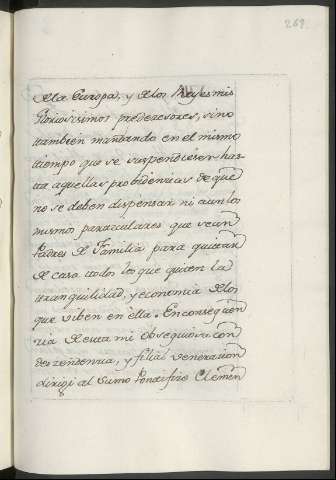 269.
de la Europa, y de los Reyes mis
gloriosisimos predecesores, sino
tambien mandando en el mismo
tiempo que se suspendiesen has-
ta aquellas probidencias de que
no se deben dispensar ni aun los
mismos particulares que sean
Padres de Familia para quitar
de casa todos los que quiten la
tranquilidad, y economia de los
que viben en ella. En consequen
cia de esta mi obsequiosa con
deszendencia, y filial veneracion
dirigi al Sumo Pontifize Clemen